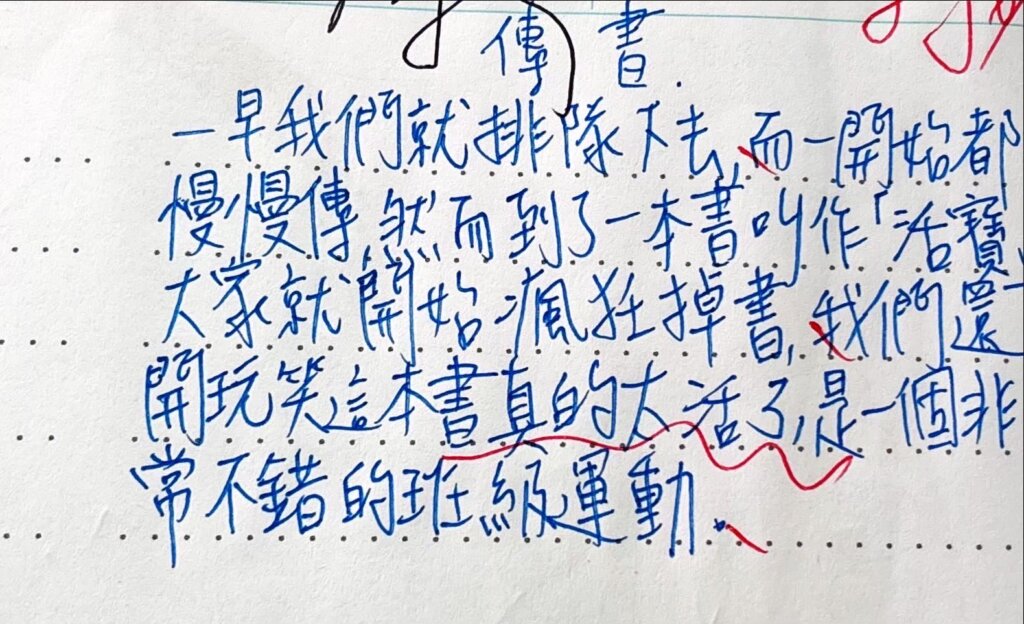 傳書.
一早我們就排隊下去,而一開始都
慢慢傳,然而到了一本書叫作「活寶」
大家就開始瘋狂掉書,我們還
開玩笑這本書真的太活了,是一個非
常不錯的班級運動.